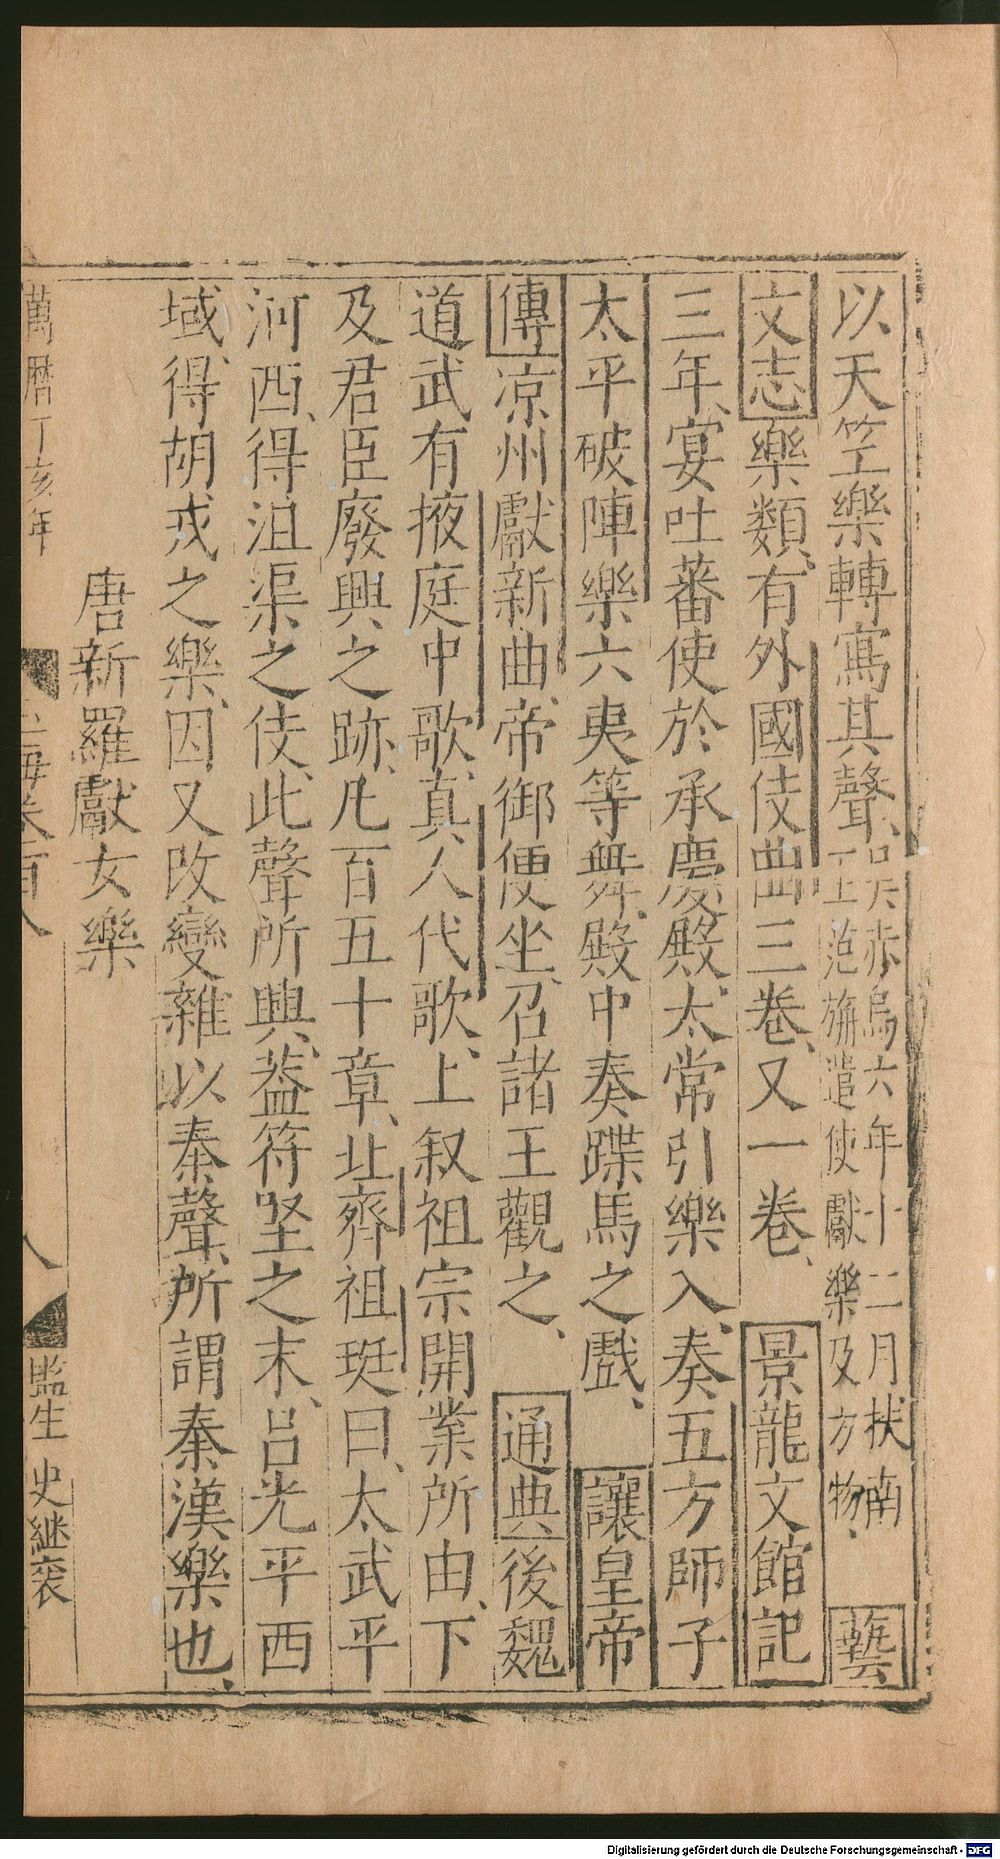 以天竺樂轉寫其聲、吳赤烏六年十二月扶南王范旃遣使獻樂及方物、藝
文志樂類、有外國伎曲三卷、又一卷、景龍文館記
三年、宴吐蕃使於承慶殿、太常引樂入、奏五方師子
太平破陣樂六夷等舞、殿中奏蹀馬之戲、讓皇帝
傳凉州獻新曲、帝御便坐、召諸王觀之、通典後魏
道武有掖庭中歌、真人代歌、上叙祖宗開業所由、下
及君臣廢興之跡、凡百五十章、北齊祖珽曰、太武平
河西、得沮渠之伎、此聲所興、蓋苻堅之末、吕光平西
域、得胡戎之樂、因又改變、雜以秦聲、所謂秦漢樂也、
唐新羅獻女樂
萬曆丁亥年
玉海卷百八
八
監生史継裘
Digitalisierung gefördert durch die Deutsche Forschungsgemeinschaft - DFG